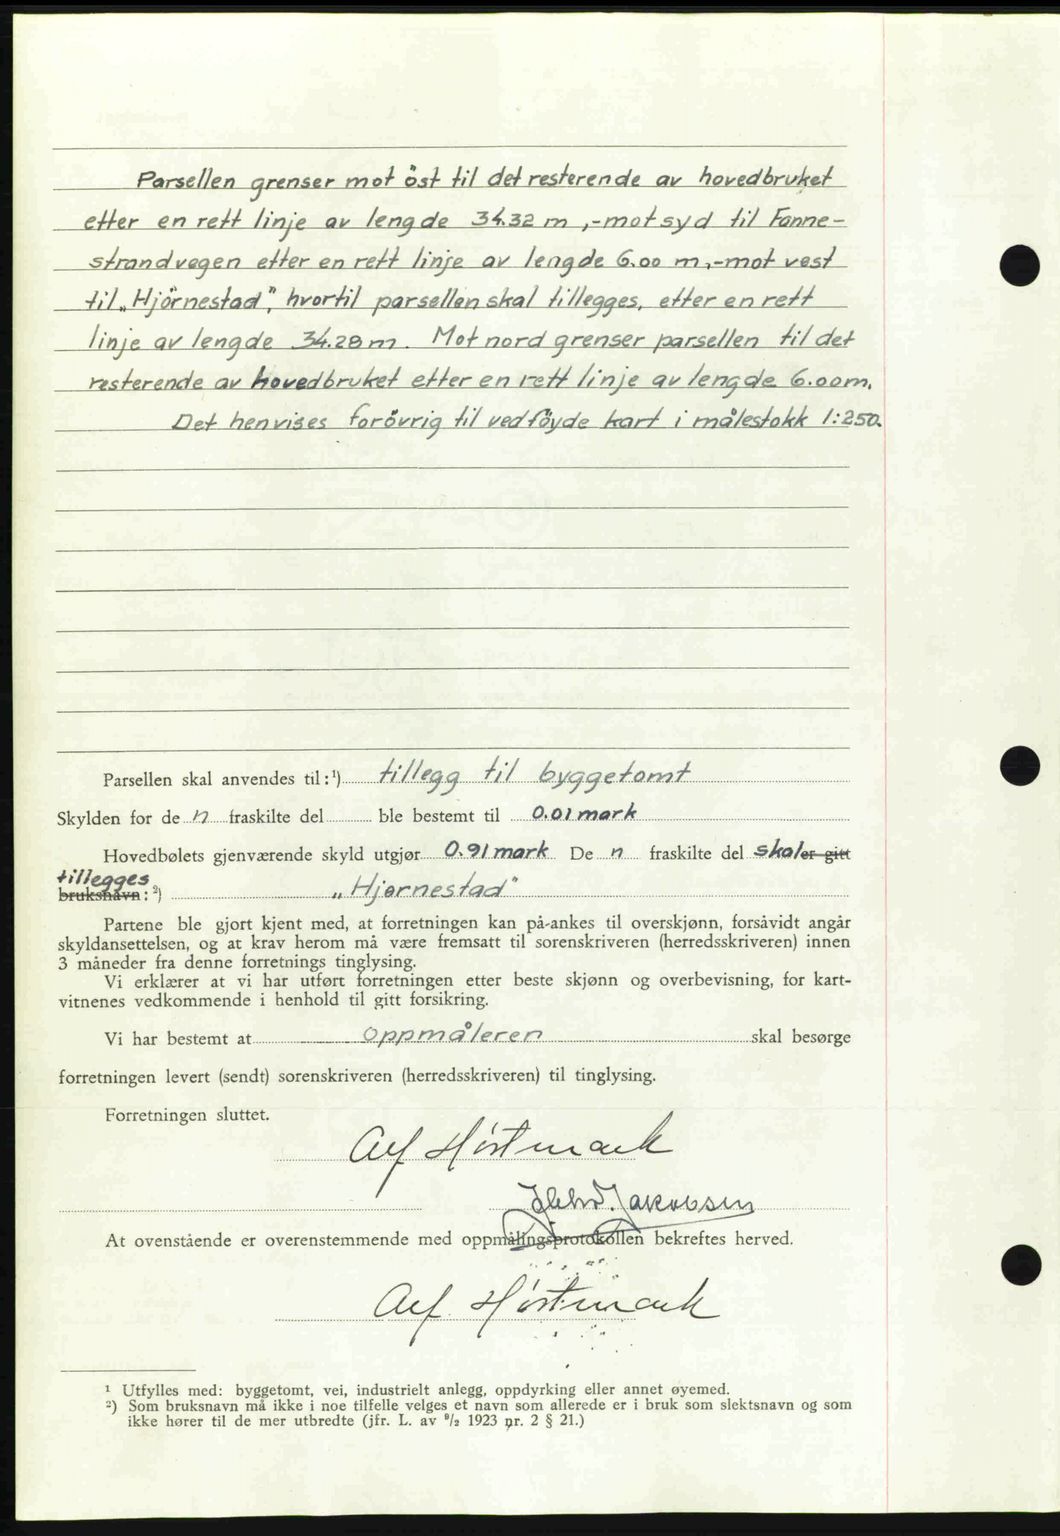 Parsellen grenser mot öst til det resterende av hovedbruket
etter en rett linje av lengde 34.32 m ,-mot syd til Fanne-
strandvegen etter en rett linje av lengde 6.00 m,-mot vest
til „Hjörnestad", hvortil parsellen skal tillegges, etter en rett
linje av lengde 34.28 m. Mot nord grenser parsellen til det
resterende av hovedbruket etter en rett linje av lengde 6.00 m.
Det henvises forövrig til vedföyde kart i målestokk 1:250.
Parsellen skal anvendes til:¹) tillegg til byggetomt
Skylden for de n fraskilte del ble bestemt til 0.01 mark
Hovedbølets gjenværende skyld utgjør 0.91 mark De n fraskilte del skal er gitt
tillegges
bruksnavn: ²) „Hjørnestad"
Partene ble gjort kjent med, at forretningen kan på-ankes til overskjønn, forsåvidt angår
skyldansettelsen, og at krav herom må være fremsatt til sorenskriveren (herredsskriveren) innen
3 måneder fra denne forretnings tinglysing.
Vi erklærer at vi har utført forretningen etter beste skjønn og overbevisning, for kart-
vitnenes vedkommende i henhold til gitt forsikring.
Vi har bestemt at oppmåleren skal besørge
forretningen levert (sendt) sorenskriveren (herredsskriveren) til tinglysing.
Forretningen sluttet.
Alf Hörstmark
Jakobsen
At ovenstående er overenstemmende med oppmålingsprotokollen bekreftes herved.
Alf Hörstmark
¹ Utfylles med: byggetomt, vei, industrielt anlegg, oppdyrking eller annet øyemed.
²) Som bruksnavn må ikke i noe tilfelle velges et navn som allerede er i bruk som slektsnavn og som
ikke hører til de mer utbredte (jfr. L. av ⁹/₂ 1923 nr. 2 § 21.)